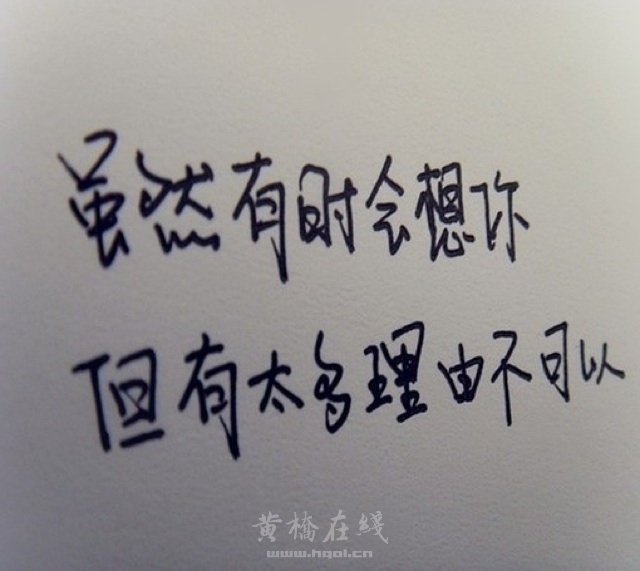 虽然有时会想你
但有太多理由不可以
黄橋在线
www.hqol.cn